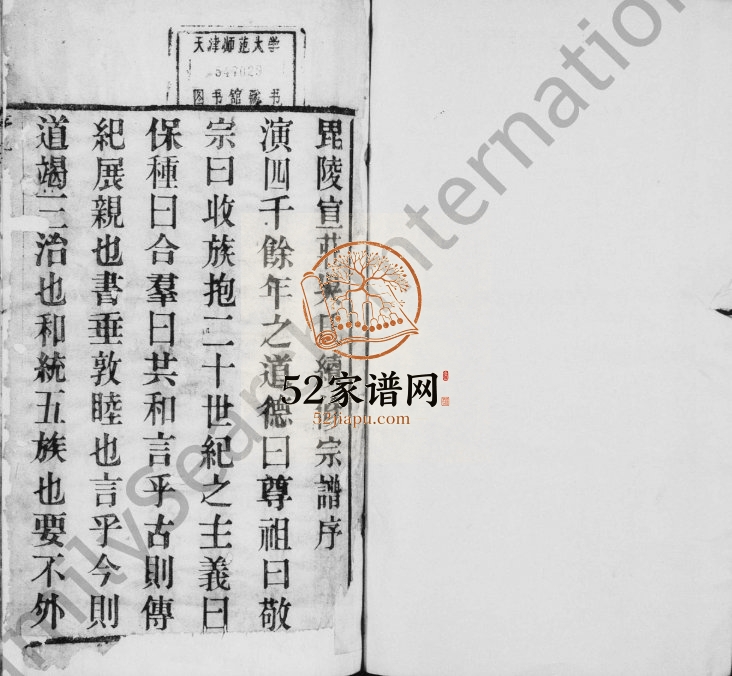 天津師范大学
547029
图书馆藏书
毘陵宣 宗譜序
演四千餘年之道德曰尊祖曰敬
宗曰收族抱二十世紀之主義曰
保種曰合羣曰共和言乎古則傳
紀展親也書垂敦睦也言乎今則
道竭三治也和統五族也要不外
52家谱网
52jiapu.com
FamilySearch International